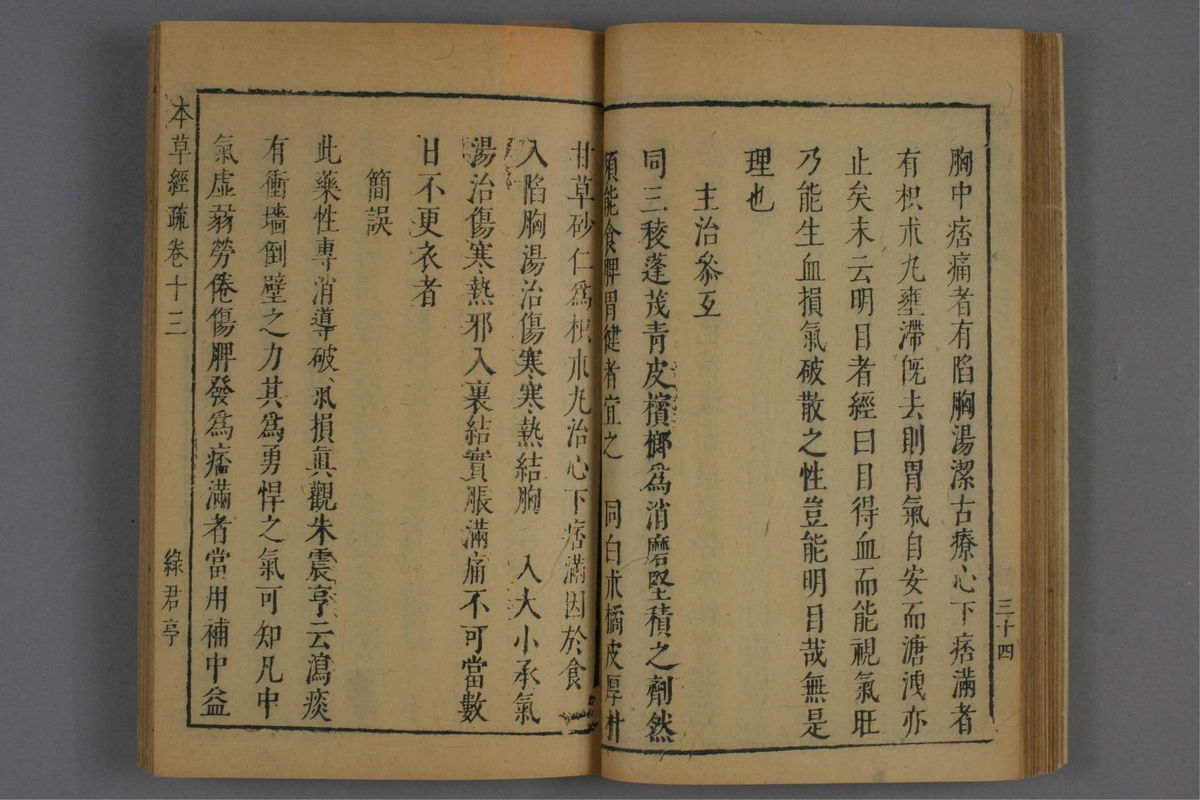 胸中痞痛者有陷胸湯潔古療心下痞滿者
有枳朮丸壅滯旣去則胃氣自安而溏洩亦
止矣末云明目者經曰目得血而能視氣旺
乃能生血損氣破散之性豈能明目哉無是
理也
主治參互
同三稜蓬莪青皮檳榔爲消磨堅積之劑然
須能食脾胃健者宜之 同白朮橘皮厚朴
三十四
甘草砂仁爲枳朮丸治心下痞滿因於食
入陷胸湯治傷寒寒熱結胸 入大小承氣
湯治傷寒熱邪入裏結實脹滿痛不可當數
日不更衣者
簡誤
此藥性專消導破氣損眞觀朱震亨云瀉痰
有衝墻倒壁之力其爲勇悍之氣可知凡中
氣虛弱勞倦傷脾發爲痞滿者當用補中益
本草經疏卷十三
綠君亭